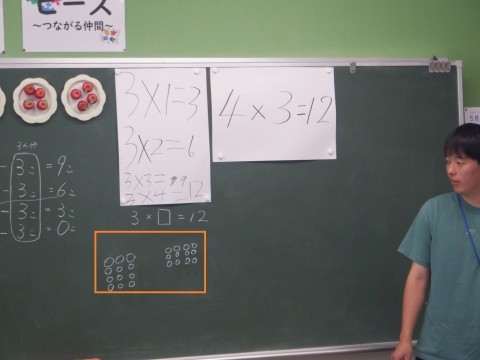 ピース
～つながる仲間～
3×1=3
3×2=6
3×3=9
3×4=12
4×3=12
3×□=12
3こ=9こ
3こ=6こ
3こ=3こ
3こ=0こ